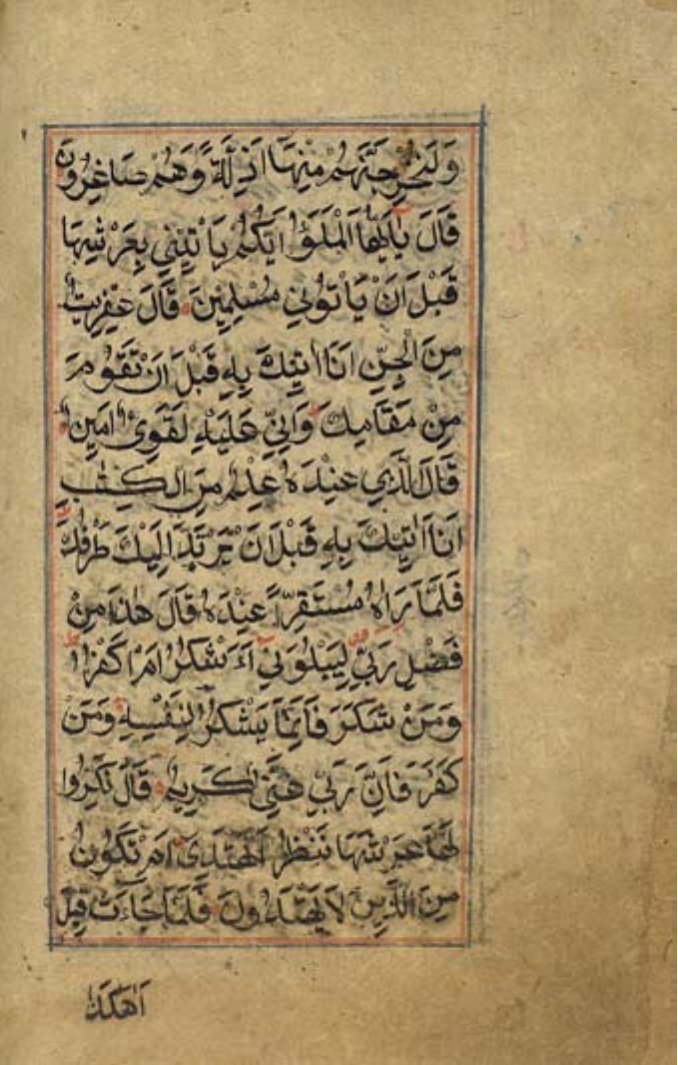 وَلَنُخْرِجَنَّهُمْ مِنْهَا اَذِلَّةً وَهُمْ صَاغِرُونَ
قَالَ يَا اَيُّهَا الْمَلَؤُا اَيُّكُمْ يَاْتِينِي بِعَرْشِهَا
قَبْلَ اَنْ يَاْتُونِي مُسْلِمِينَ قَالَ عِفْرِيتٌ
مِنَ الْجِنِّ اَنَا اٰتِيكَ بِهِ قَبْلَ اَنْ تَقُومَ
مِنْ مَقَامِكَ وَاِنِّي عَلَيْهِ لَقَوِىٌّ اَمِينٌ
قَالَ الَّذِي عِنْدَهُ عِلْمٌ مِنَ الْكِتٰبِ
اَنَا اٰتِيكَ بِهِ قَبْلَ اَنْ يَرْتَدَّ اِلَيْكَ طَرْفُكَ
فَلَمَّا رَاٰهُ مُسْتَقِرًّا عِنْدَهُ قَالَ هٰذَا مِنْ
فَضْلِ رَبِّي لِيَبْلُوَنِي ءَاَشْكُرُ اَمْ اَكْفُرُ
وَمَنْ شَكَرَ فَاِنَّمَا يَشْكُرُ لِنَفْسِهِ وَمَنْ
كَفَرَ فَاِنَّ رَبِّي غَنِىٌّ كَرِيمٌ قَالَ نَكِّرُوا
لَهَا عَرْشَهَا نَنْظُرْ اَتَهْتَدِى اَمْ تَكُونُ
مِنَ الَّذِينَ لَا يَهْتَدُونَ فَلَمَّا جَاءَتْ قِيلَ
اَهٰكَذَا